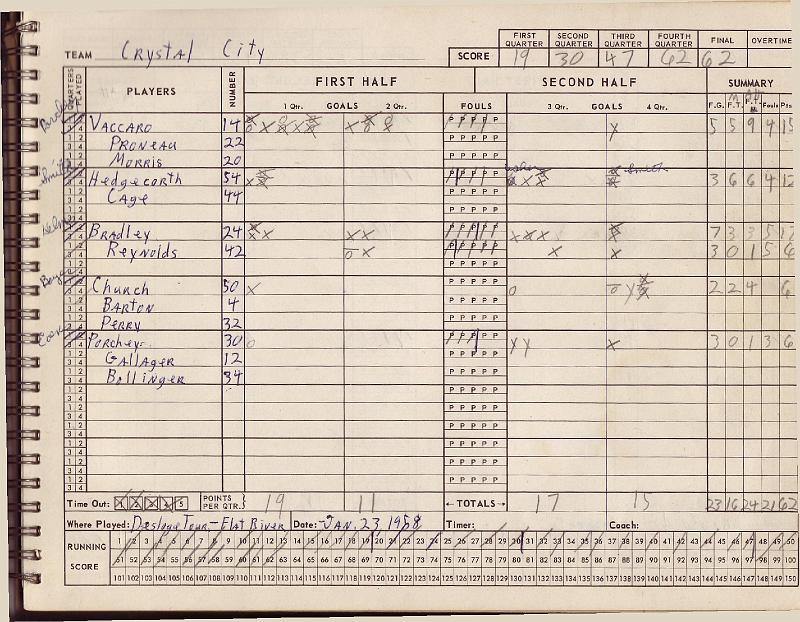 FIRST QUARTER SECOND QUARTER THIRD QUARTER FOURTH QUARTER FINAL OVERTIME
TEAM Crystal City SCORE 19 30 47 62 62
QUARTERS PLAYED PLAYERS NUMBER FIRST HALF SECOND HALF SUMMARY
1 Qtr. GOALS 2 Qtr. FOULS 3 Qtr. GOALS 4 Qtr. F.G. F.T. Fouls Pts
VACCARO 14 P P P P P 5 5 9 4 15
PRONEAU 22 P P P P P
MORRIS 20 P P P P P
Hedgecorth 54 P P P P P Smith 3 6 6 4 12
CAGE 44 P P P P P
P P P P P
Bradley 24 P P P P P 7 3 3 5 17
Reynolds 42 P P P P P 3 0 1 5 6
P P P P P
Church 50 P P P P P 2 2 4 6
BARTON 4 P P P P P
PERRY 32 P P P P P
Porchey 30 P P P P P 3 0 1 3 6
GALLAGER 12 P P P P P
Bollinger 34 P P P P P
P P P P P
P P P P P
P P P P P
P P P P P
P P P P P
Time Out: 1 2 3 4 5 POINTS PER QTR. 19 11 ←TOTALS→ 17 15 23 16 24 21 62
Where Played: Desloge Tour-Flat River Date: JAN. 23 1958 Timer: Coach:
RUNNING SCORE
1 2 3 4 5 6 7 8 9 10 11 12 13 14 15 16 17 18 19 20 21 22 23 24 25 26 27 28 29 30 31 32 33 34 35 36 37 38 39 40 41 42 43 44 45 46 47 48 49 50
51 52 53 54 55 56 57 58 59 60 61 62 63 64 65 66 67 68 69 70 71 72 73 74 75 76 77 78 79 80 81 82 83 84 85 86 87 88 89 90 91 92 93 94 95 96 97 98 99 100
101 102 103 104 105 106 107 108 109 110 111 112 113 114 115 116 117 118 119 120 121 122 123 124 125 126 127 128 129 130 131 132 133 134 135 136 137 138 139 140 141 142 143 144 145 146 147 148 149 150